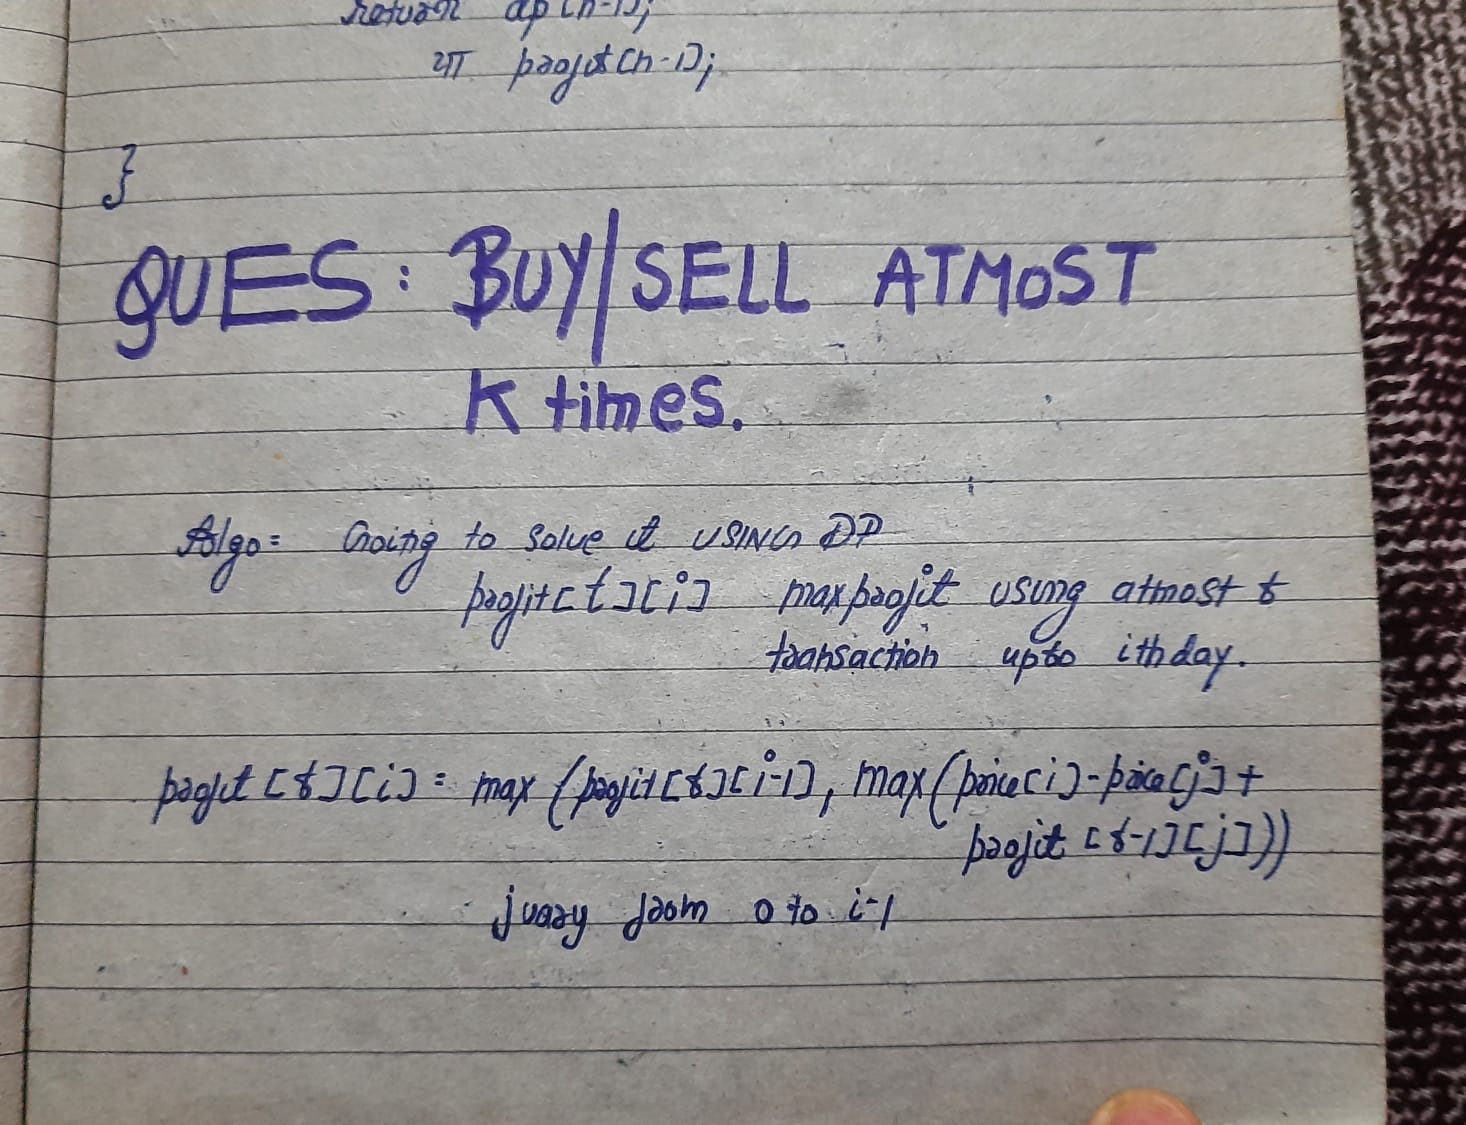 return dp[n-1];
या profit[n-1];
}
QUES: BUY/SELL ATMOST
K times.
Algo= Going to solve it USING DP
profit[t][i] maxprofit using atmost t
transaction upto ith day.
profit[t][i] = max(profit[t][i-1], max(price[i]-price[j]+
profit[t-1][j]))
j vary from 0 to i-1